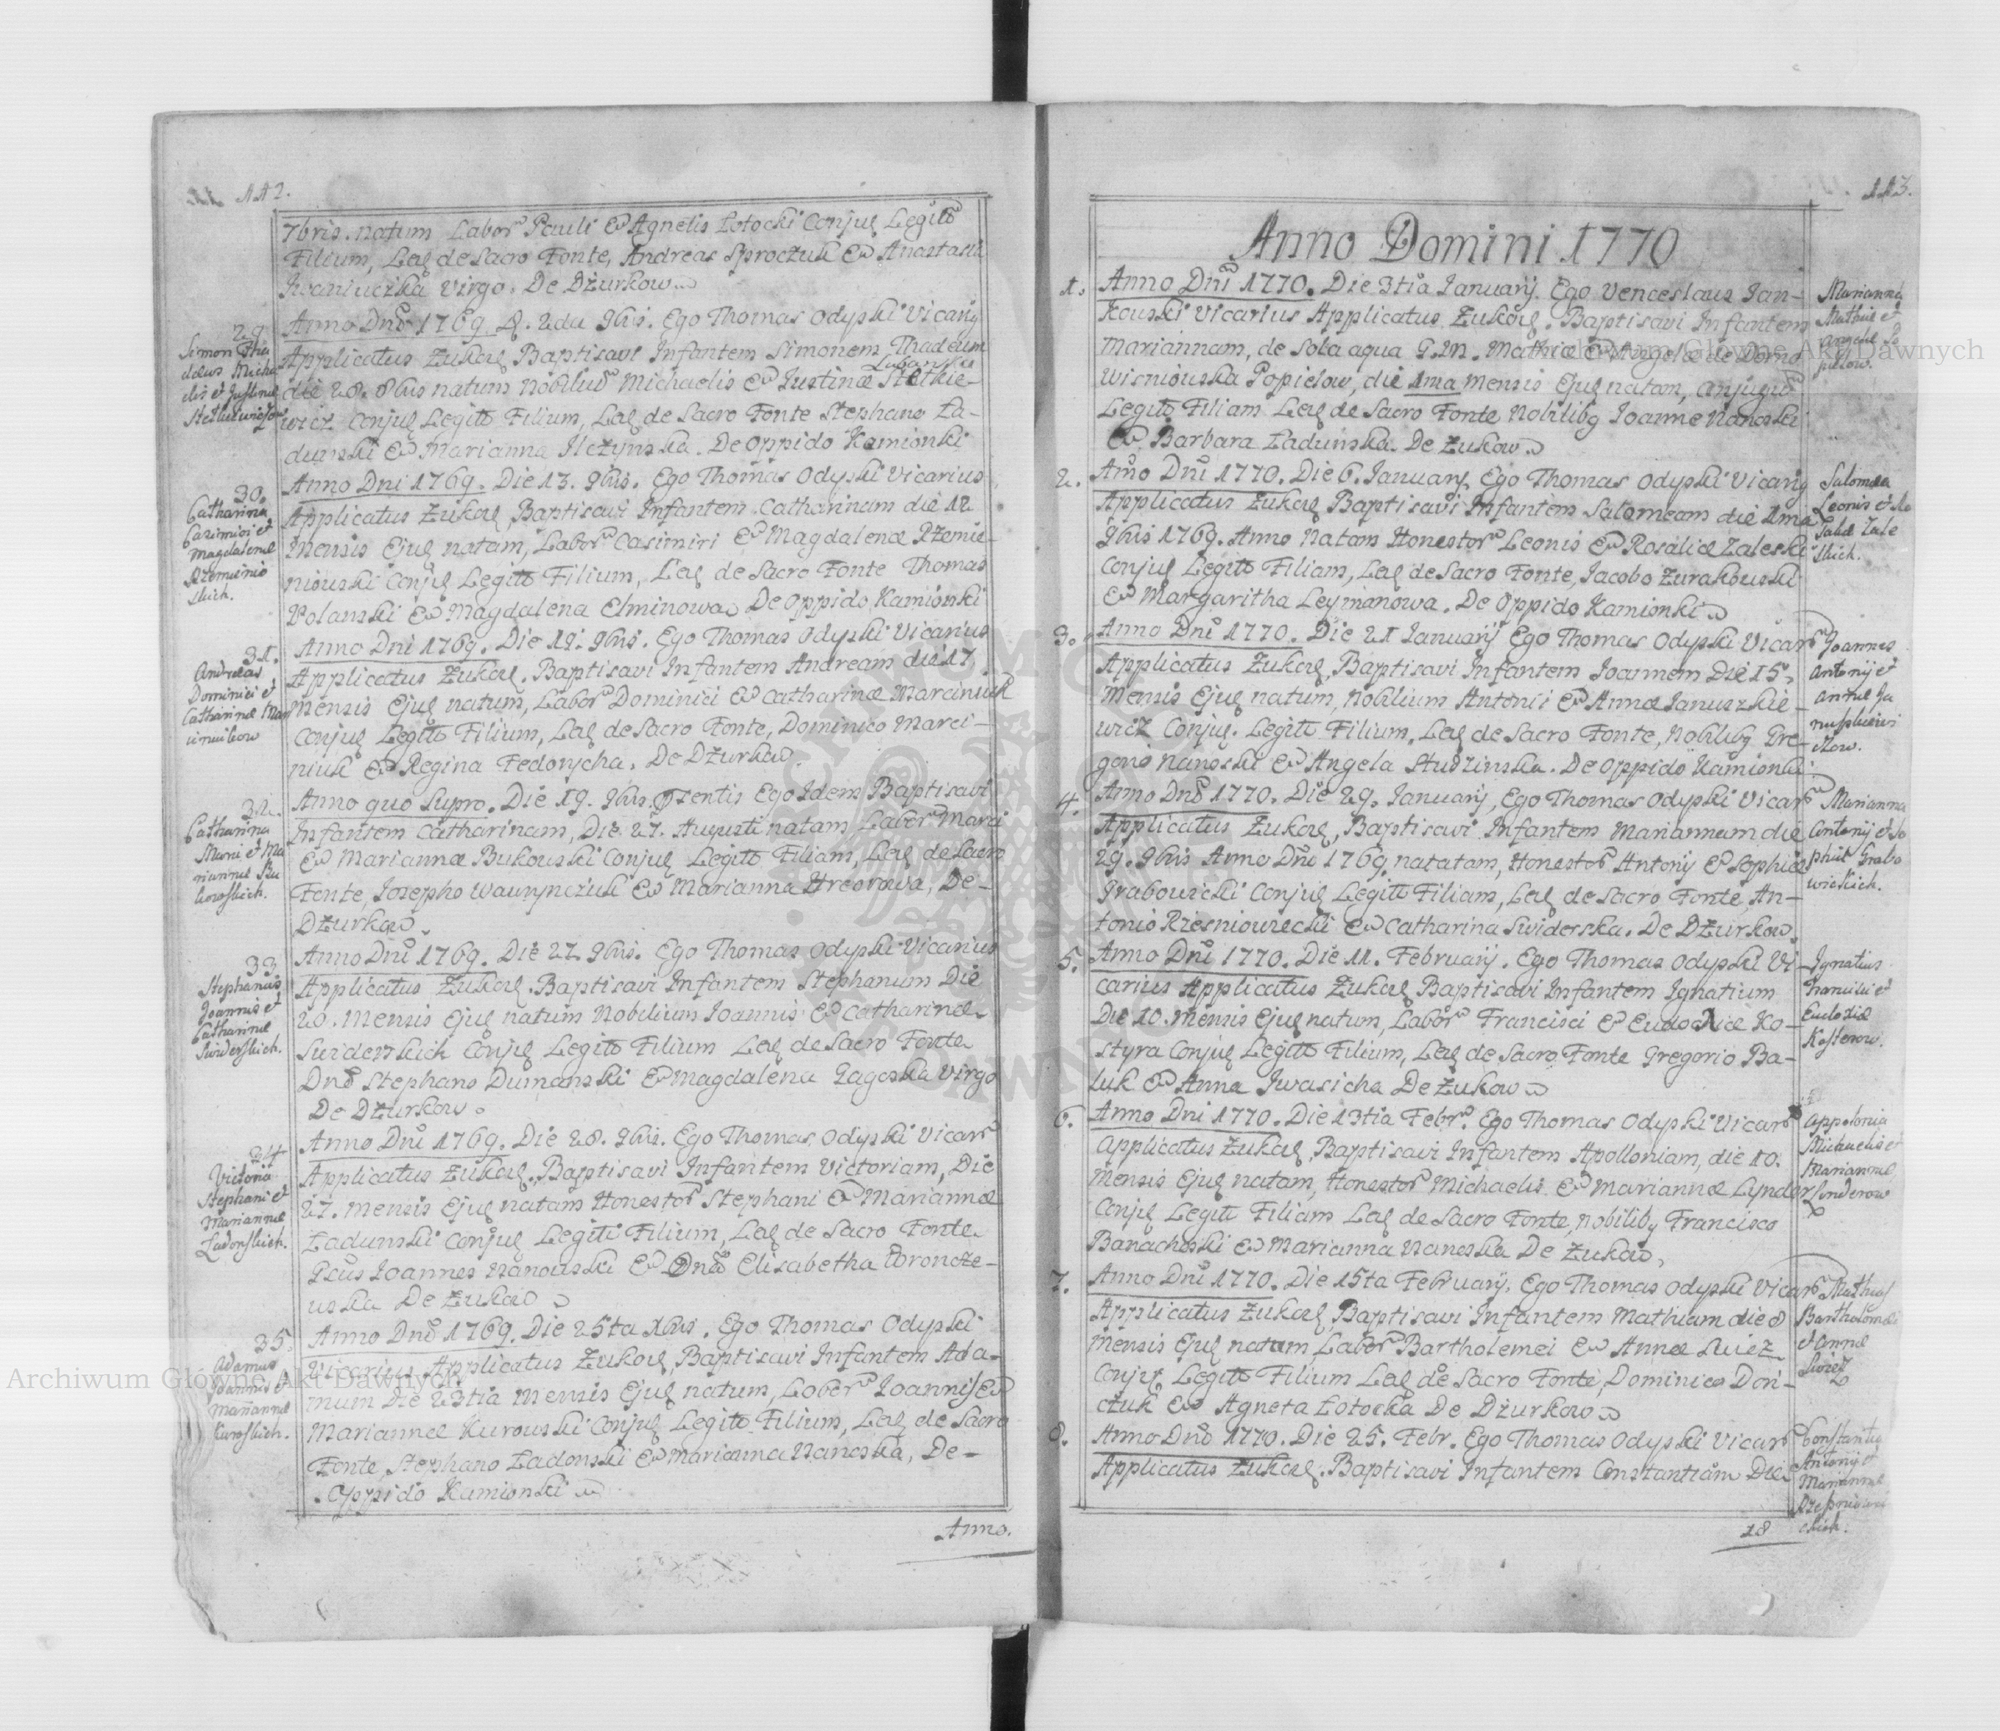 112.
7bris. natum Labor Pauli & Agnetis Łotocki Conjug Legitō
Filium, Leḡ de Sacro Fonte, Andreas Sproczuk & Anastasia
Iwaniuczka Virgo. De Dżurkow.
29.
Simon Tha
deus Micha
elis et Justinæ
Stetkiewiczow
Anno Dnō 1769. d. 2da 9bris. Ego Thomas Odyski Vicariȝ
Applicatus Żukoȩ Baptisavi Infantem Simonem Thadeum
die 28. 8bris natum Nobiliū Michaelis & Justinæ Stetkie-
wicz Conjug Legitō Filium, Leḡ de Sacro Fonte Stephano Ła-
dunski & Marianna Ilczynska. De Oppido Kamionki
30.
Catharina
Casimiri et
Magdalenæ
Rzemienio
skich.
Anno Dni 1769. Die 13. 9bris. Ego Thomas Odyski Vicarius
Applicatus Żukoȩ Baptisavi Infantem Catharinam die 12
Mensis Ejuȩ natam, Labor Casimiri & Magdalenæ Rzemie-
niouski Conjuȩ Legitō Filium, Leḡ de Sacro Fonte Thomas
Polanski & Magdalena Elminowa De Oppido Kamionki
31.
Andreas
Dominici et
Catharinæ Mar
ciniukow
Anno Dni 1769. Die 19. 9bris. Ego Thomas Odyski Vicarius
Applicatus Żukoȩ. Baptisavi Infantem Andream die 17.
Mensis Ejuȩ natum, Labor Dominici & Catharinæ Marciniuk
Conjuȩ Legitō Filium, Leḡ de Sacro Fonte, Dominico Marci-
niuk & Regina Fedonycha. De Dżurkow.
32.
Catharina
Marci et Ma
riannæ Bu
kowskich.
Anno quo Supro. Die 19. 9bris. Ego Idem Baptisavi
Infantem Catharinam, Die 27. Augusti natam Labor Marci
& Mariannæ Bukouski Conjuȩ Legitō Filiam, Leḡ de Sacro
Fonte, Josepho Wawrynczuk & Marianna Hreorowa, De-
Dżurkow.
33
Stephanus
Joannis et
Catharinæ
Swiderskich.
Anno Dnī 1769. Die 27. 9bris. Ego Thomas Odyski Vicarius
Applicatus Żukoȩ. Baptisavi Infantem Stephanum Die
20. Mensis Ejuȩ natum Nobilium Joannis & Catharinæ
Swiderskich Conjuȩ Legitō Filium Leḡ de Sacro Fonte
Dnō Stephano Dumanski & Magdalena Gagoska Virgo
De Dżurkow.
34
Victoria
Stephani et
Mariannæ
Ładonskich.
Anno Dnī 1769. Die 28. 9bris. Ego Thomas Odyski Vicar
Applicatus Żukoȩ. Baptisavi Infantem Victoriam, Die
27. Mensis Ejuȩ natam Honestor Stephani & Mariannæ
Ładunski Conjuȩ Legiti Filium, Leḡ de Sacro Fonte
Joannes Nanouski & Dnā Elisabetha Woroncze-
uska De Żukow
35.
Adamus
Joannis et
Mariannæ
Kuroskich.
Anno Dnī 1769. Die 25ta Xbris. Ego Thomas Odyski
Vicarius Applicatus Żukoȩ Baptisavi Infantem Ada-
mum Die 23tia Mensis Ejuȩ natum, Labor Joannis &
Mariannæ Kurouski Conjuȩ Legitō Filium, Leḡ de Sacro
Fonte, Stephano Ładonski & Marianna Nanoska, De-
Oppido Kamionki
Anno.
113.
Anno Domini 1770
1.
Anno Dnī 1770. Die 3tia January. Ego Venceslaus Jan-
kouski Vicarius Applicatus Żukoȩ. Baptisavi Infantem
Mariannam, de Sola aqua G.M. Mathiæ & Angelæ de Domo
Wisniouska Popielow, die 1ma Mensis Ejuȩ natam, Conjugū
Legitō Filiam Leḡ de Sacro Fonte Nobilibȝ Joanne Nanoski
& Barbara Ładunska. De Żukow
Marianna
Mathiæ et
Angelæ Po
pielow.
2.
Anno Dnī 1770. Die 6. January. Ego Thomas Odyski Vicariȝ
Applicatus Żukoȩ, Baptisavi Infantem Salomeam die 1ma
9bris 1769. Anno Natam Honestor Leonis & Rosaliæ Zaleski
Conjuȩ Legitō Filiam, Leḡ de Sacro Fonte, Jacobo Żurakouski
& Margaritha Leymanowa. De Oppido Kamionki
Salomea
Leonis et Ro
saliæ Zale
skich.
3.
Anno Dnī 1770. Die 21 January Ego Thomas Odyski Vicar
Applicatus Żukoȩ, Baptisavi Infantem Joannem Die 15.
Mensis Ejuȩ natum, Nobilium Antonii & Annæ Januszkie-
wicz Conjuȩ. Legitō Filium, Leḡ de Sacro Fonte, Nobilibȝ Gre-
gorio Nanoski & Angela Studzinska. De Oppido Kamionki
Joannes
Antonij et
Annæ Ja
nuszkiewi
czow.
4.
Anno Dnō 1770. Die 29. January, Ego Thomas Odyski Vicar
Applicatus Żukoȩ, Baptisavi Infantem Mariannam die
29. 9bris Anno Dnī 1769 natatam, Honestor Antonij & Sophiæ
Grabowicki Conjuȩ Legitō Filiam, Leḡ de Sacro Fonte, An-
tonio Rzesniowiecki & Catharina Swiderska. De Dżurkow.
Marianna
Antonij et So
phiæ Grabo
wickich.
5.
Anno Dnī 1770. Die 11. February. Ego Thomas Odyski Vi
carius Applicatus Żukoȩ Baptisavi Infantem Ignatium
Die 10. Mensis Ejuȩ natum, Labor Francisci & Eudoxiæ Ko-
styra Conjuȩ Legitō Filium, Leḡ de Sacro Fonte Gregorio Ba-
luk & Anna Iwasicha De Żukow
Ignatius
Francisci et
Eudoxiæ
Kosterow.
6.
Anno Dni 1770. Die 13tia Febr. Ego Thomas Odyski Vicar
Applicatus Żukoȩ, Baptisavi Infantem Apolloniam, die 10.
Mensis Ejuȩ natam, Honestor Michaelis & Mariannæ Lynder
Conjuȩ Legitī Filiam Leḡ de Sacro Fonte, Nobilibȝ Francisco
Banachoski & Marianna Nanoska De Żukow,
Appolonia
Michaelis et
Mariannæ
Lynderow
7.
Anno Dnī 1770. Die 15ta February, Ego Thomas Odyski Vicar
Applicatus Żukoȩ, Baptisavi Infantem Mathiam die 8
Mensis Ejuȩ natum Labor Bartholomei & Annæ Suiez
Conjuȩ Legitō Filium Leḡ de Sacro Fonte, Dominico Don-
czuk & Agneta Łotocka De Dżurkow
Mathias
Bartholomæi
et Annæ
8.
Anno Dnō 1770. Die 25. Febr. Ego Thomas Odyski Vicar
Applicatus Żukoȩ. Baptisavi Infantem Constantiam Die
Constantia
Antonij et
Mariannæ
Rzesniowie
ckich.
18
Archiwum Główne Akt Dawnych
Archiwum Główne Akt Dawnych